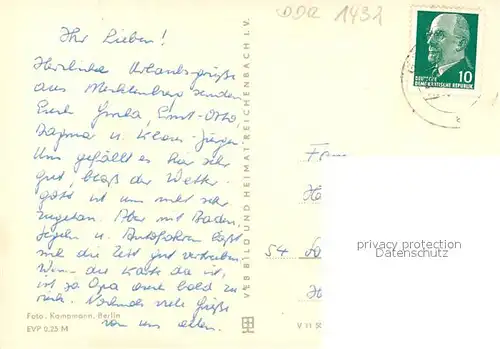 DDR 1432
Ihr Lieben!
Herzliche Urlaubsgrüße
aus Mecklenburg senden
Euch Gerda, Ernst-Otto,
Dagmar u. Klaus-Jürgen
Uns gefällt es hier sehr
gut, bloß der Wetter-
gott ist uns nicht sehr
zugetan. Aber mit Baden,
Segeln u. Autofahren läßt
sich die Zeit gut vertreiben.
Wenn die Karte da ist,
ist ja Opa auch bald zu
Nochmals viele Grüße
von uns allen.
Foto: Kampmann, Berlin
EVP 0,25 M
VEB BILD UND HEIMAT REICHENBACH I. V.
DEUTSCHE
DEMOKRATISCHE REPUBLIK
10
54
V 11 50
privacy protection
Datenschutz